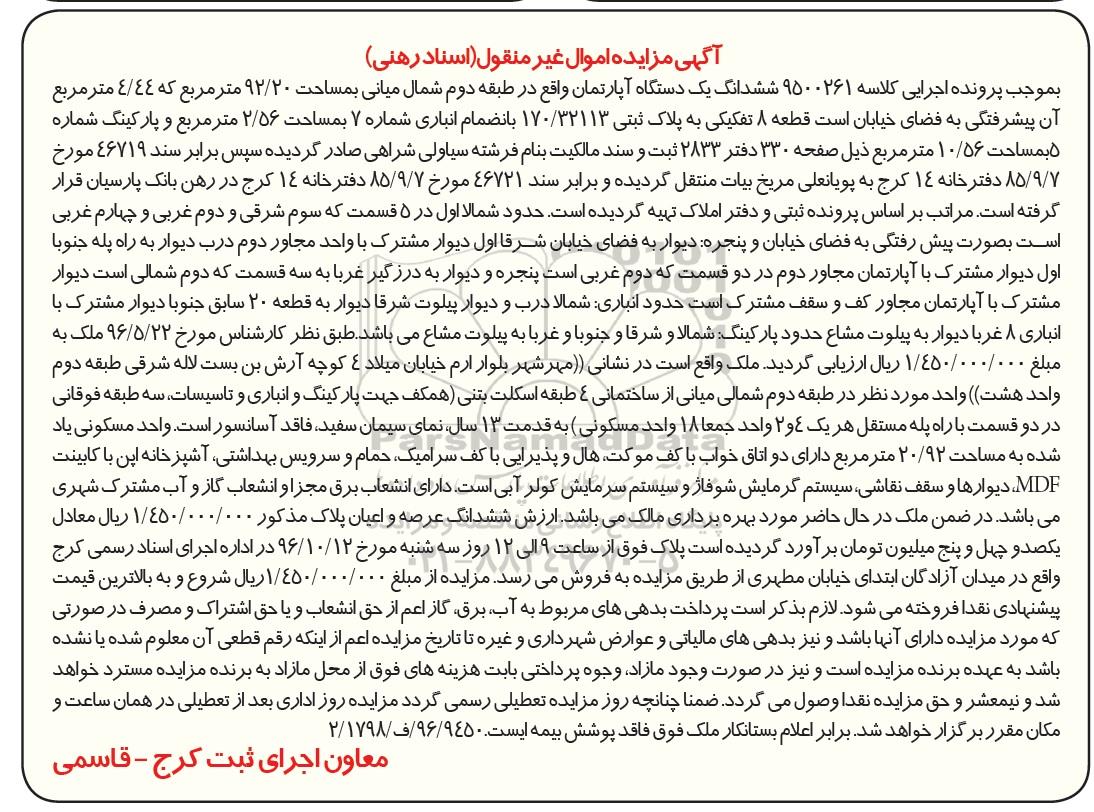 آگهی مزایده اموال غیر منقول(اسناد رهنی)
بموجب پرونده اجرایی کلاسه ۹۵۰۰۲۶۱ ششدانگ یک دستگاه آپارتمان واقع در طبقه دوم شمال میانی بمساحت ۹۲/۲۰ مترمربع که ۴/۴۴ مترمربع
آن پیشرفتگی به فضای خیابان است قطعه ۸ تفکیکی به پلاک ثبتی ۱۷۰/۳۲۱۱۳ بانضمام انباری شماره ۷ بمساحت ۲/۵۶ مترمربع و پارکینگ شماره
۵بمساحت ۱۰/۵۶ مترمربع ذیل صفحه ۳۳۰ دفتر ۲۸۳۳ ثبت و سند مالکیت بنام فرشته سیاولی شراهی صادر گردیده سپس برابر سند ۴۶۷۱۹ مورخ
۸۵/۹/۷ دفترخانه ۱۴ کرج به پویانعلی مریخ بیات منتقل گردیده و برابر سند ۴۶۷۲۱ مورخ ۸۵/۹/۷ دفترخانه ۱۴ کرج در رهن بانک پارسیان قرار
گرفته است. مراتب بر اساس پرونده ثبتی و دفتر املاک تهیه گردیده است. حدود شمالا اول در ۵ قسمت که سوم شرقی و دوم غربی و چهارم غربی
است بصورت پیش رفتگی به فضای خیابان و پنجره: دیوار به فضای خیابان شرقا اول دیوار مشترک با واحد مجاور دوم درب دیوار به راه پله جنوبا
اول دیوار مشترک با آپارتمان مجاور دوم در دو قسمت که دوم غربی است پنجره و دیوار به درزگیر غربا به سه قسمت که دوم شمالی است دیوار
مشترک با آپارتمان مجاور کف و سقف مشترک است حدود انباری: شمالا درب و دیوار پیلوت شرقا دیوار به قطعه ۲۰ سابق جنوبا دیوار مشترک با
انباری ۸ غربا دیوار به پیلوت مشاع حدود پارکینگ: شمالا و شرقا و جنوبا و غربا به پیلوت مشاع می باشد.طبق نظر کارشناس مورخ ۹۶/۵/۲۲ ملک به
مبلغ ۱/۴۵۰/۰۰۰/۰۰۰ ریال ارزیابی گردید. ملک واقع است در نشانی ((مهرشهر بلوار ارم خیابان میلاد ۴ کوچه آرش بن بست لاله شرقی طبقه دوم
واحد هشت)) واحد مورد نظر در طبقه دوم شمالی میانی از ساختمانی ۴ طبقه اسکلت بتنی (همکف جهت پارکینگ و انباری و تاسیسات، سه طبقه فوقانی
در دو قسمت با راه پله مستقل هر یک ۴و۲ واحد جمعا ۱۸ واحد مسکونی ) به قدمت ۱۳ سال، نمای سیمان سفید، فاقد آسانسور است. واحد مسکونی یاد
شده به مساحت ۲۰/۹۲ مترمربع دارای دو اتاق خواب با کف موکت، هال و پذیرایی با کف سرامیک، حمام و سرویس بهداشتی، آشپزخانه اپن با کابینت
MDF، دیوارها و سقف نقاشی، سیستم گرمایش شوفاژ و سیستم سرمایش کولر آبی است. دارای انشعاب برق مجزا و انشعاب گاز و آب مشترک شهری
می باشد. در ضمن ملک در حال حاضر مورد بهره برداری مالک می باشد. ارزش ششدانگ عرصه و اعیان پلاک مذکور ۱/۴۵۰/۰۰۰/۰۰۰ ریال معادل
یکصدو چهل و پنج میلیون تومان برآورد گردیده است پلاک فوق از ساعت ۹ الی ۱۲ روز سه شنبه مورخ ۹۶/۱۰/۱۲ در اداره اجرای اسناد رسمی کرج
واقع در میدان آزادگان ابتدای خیابان مطهری از طریق مزایده به فروش می رسد. مزایده از مبلغ ۱/۴۵۰/۰۰۰/۰۰۰ریال شروع و به بالاترین قیمت
پیشنهادی نقدا فروخته می شود. لازم بذکر است پرداخت بدهی های مربوط به آب، برق، گاز اعم از حق انشعاب و یا حق اشتراک و مصرف در صورتی
که مورد مزایده دارای آنها باشد و نیز بدهی های مالیاتی و عوارض شهرداری و غیره تا تاریخ مزایده اعم از اینکه رقم قطعی آن معلوم شده یا نشده
باشد به عهده برنده مزایده است و نیز در صورت وجود مازاد، وجوه پرداختی بابت هزینه های فوق از محل مازاد به برنده مزایده مسترد خواهد
شد و نیمعشر و حق مزایده نقدا وصول می گردد. ضمنا چنانچه روز مزایده تعطیلی رسمی گردد مزایده روز اداری بعد از تعطیلی در همان ساعت و
مکان مقرر برگزار خواهد شد. برابر اعلام بستانکار ملک فوق فاقد پوشش بیمه ایست.۹۶/۹۴۵۰/ف/۲/۱۷۹۸
معاون اجرای ثبت کرج - قاسمی
ParsNamadData
پایگاه اطلاع رسانی مناقصه و مزایده
۰۲۱-۸۸۳۴۹۶۷۰-۵